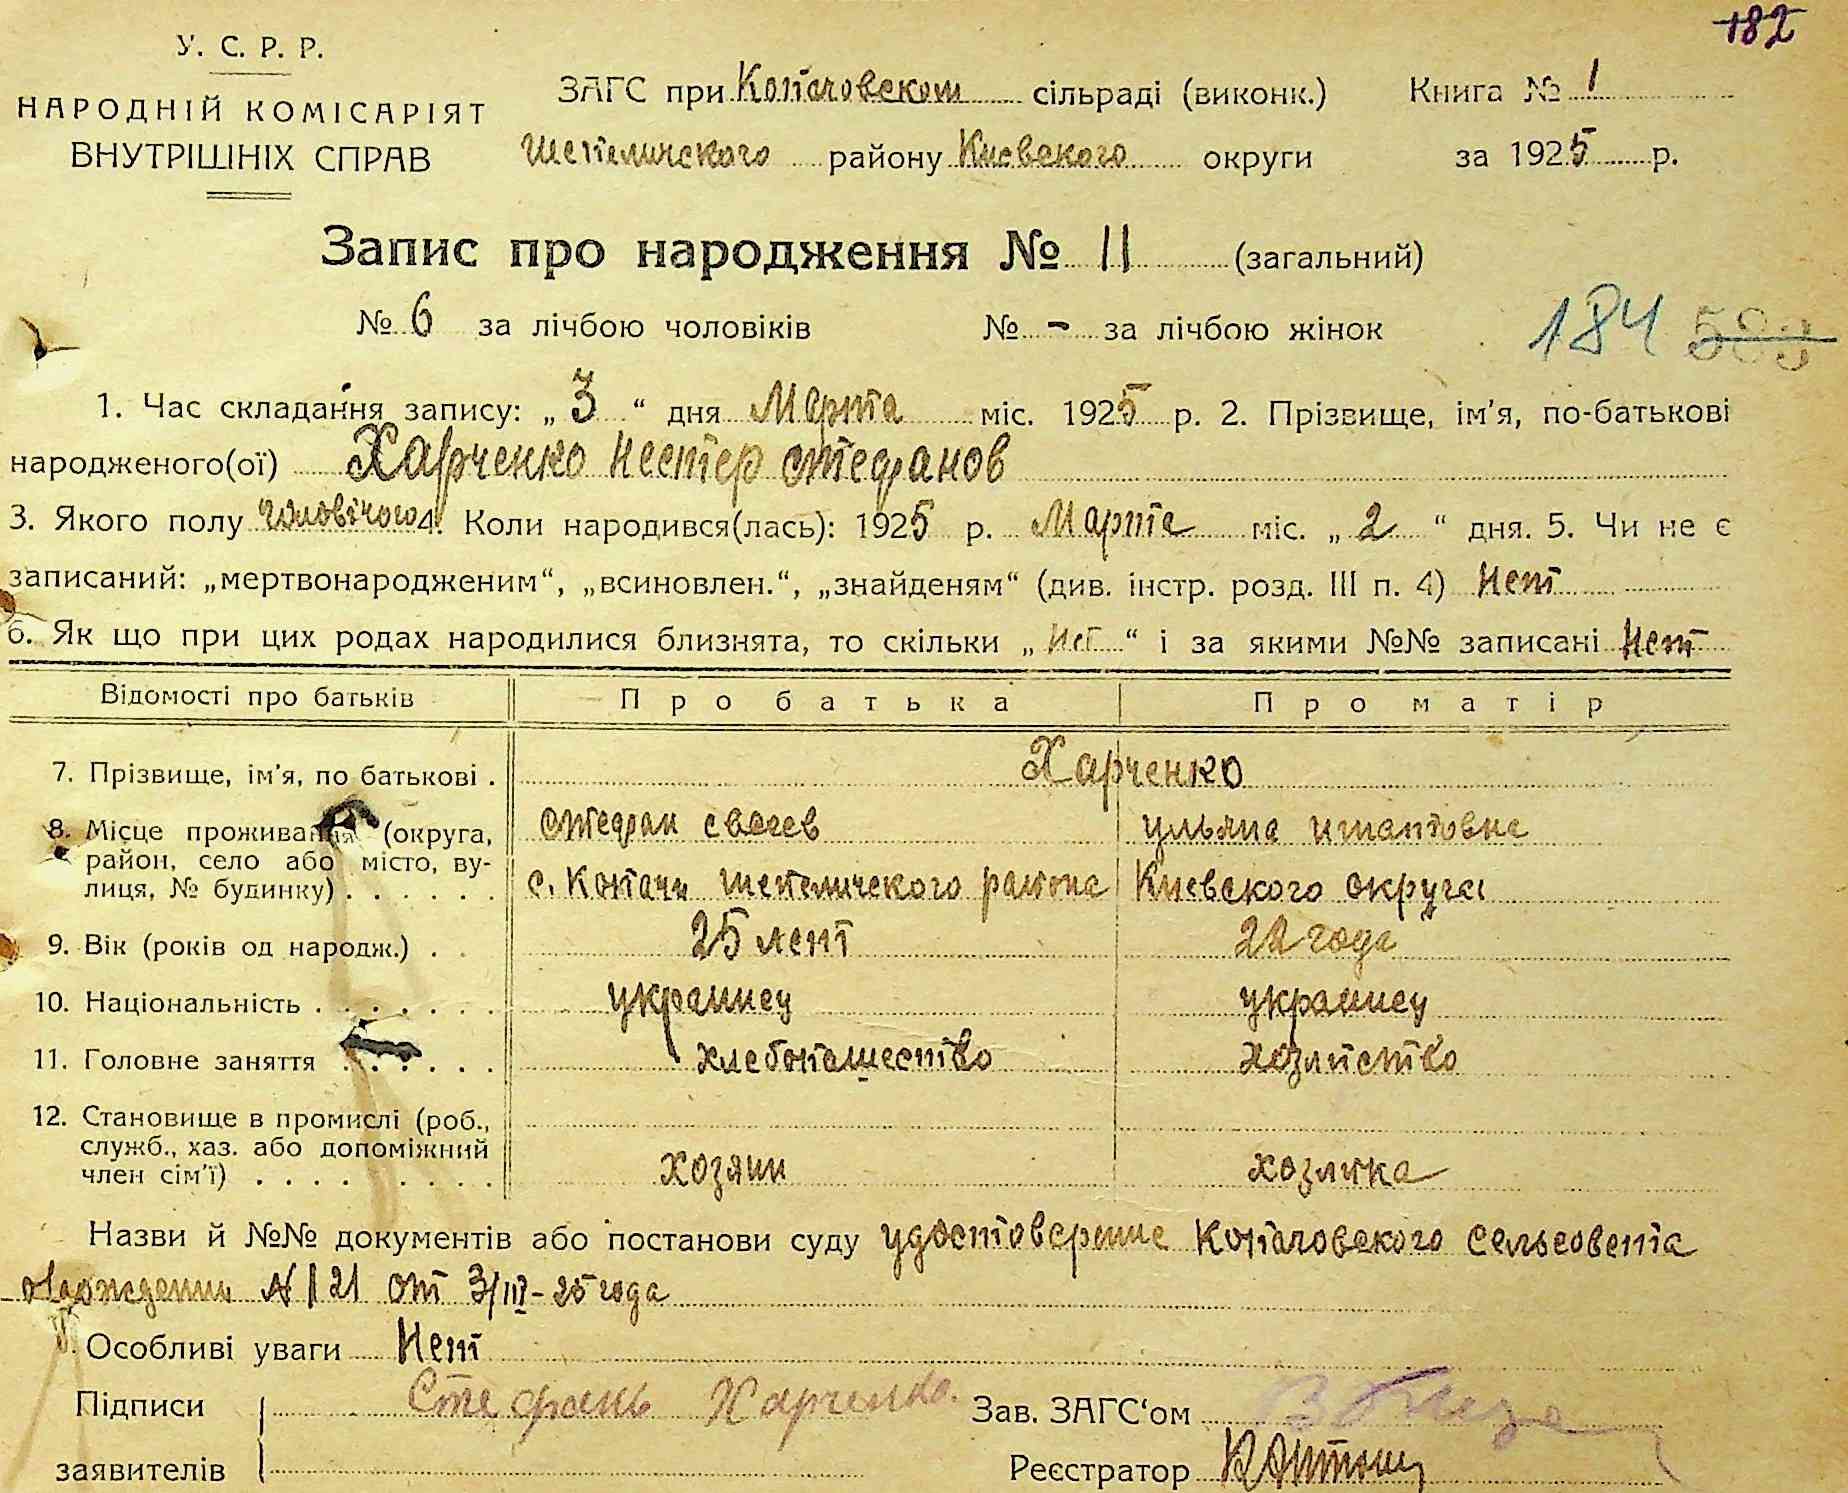 182
У. С. Р. Р.
НАРОДНІЙ КОМІСАРІЯТ
ВНУТРІШНІХ СПРАВ
ЗАГС при Копачовском сільраді (виконк.) Книга № 1
Шепеличского району Киевского округи за 1925 р.
Запис про народження № 11 (загальний)
№ 6 за лічбою чоловіків № - за лічбою жінок
184 503
1. Час складання запису: „ 3 “ дня Марта міс. 1925 р. 2. Прізвище, ім’я, по-батькові
народженого(ої) Харченко Нестер Стефанов
3. Якого полу чоловічого 4. Коли народився(лась): 1925 р. Марта міс. „ 2 “ дня. 5. Чи не є
записаний: „мертвонародженим“, „всиновлен.“, „знайденям“ (див. інстр. розд. III п. 4) Нет
6. Як що при цих родах народилися близнята, то скільки „ Нет “ і за якими №№ записані Нет
Відомості про батьків Про батька Про матір
7. Прізвище, ім’я, по батькові . Харченко
Стефан ульяна
8. Місце проживання (округа,
район, село або місто, ву-
лиця, № будинку) . . . . . . с. Копачи Шепеличского района Киевского округа
9. Вік (років од народж.) . . 25 лет 22 года
10. Національність . . . . . . . украинец украинец
11. Головне заняття . . . . . . хлебопашество хозяйство
12. Становище в промислі (роб.,
служб., хаз. або допоміжний
член сім’ї) . . . . . . . . . хозяин хозяйка
Назви й №№ документів або постанови суду удостоверение Копачовского сельсовета
о рождении № 121 от 3/III-25 года
Особливі уваги Нет
Підписи Стефань Харченко. Зав. ЗАГС‘ом
заявителів Реєстратор